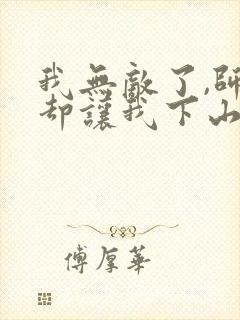 我無敵了,師
却讓我下山
傅厚華